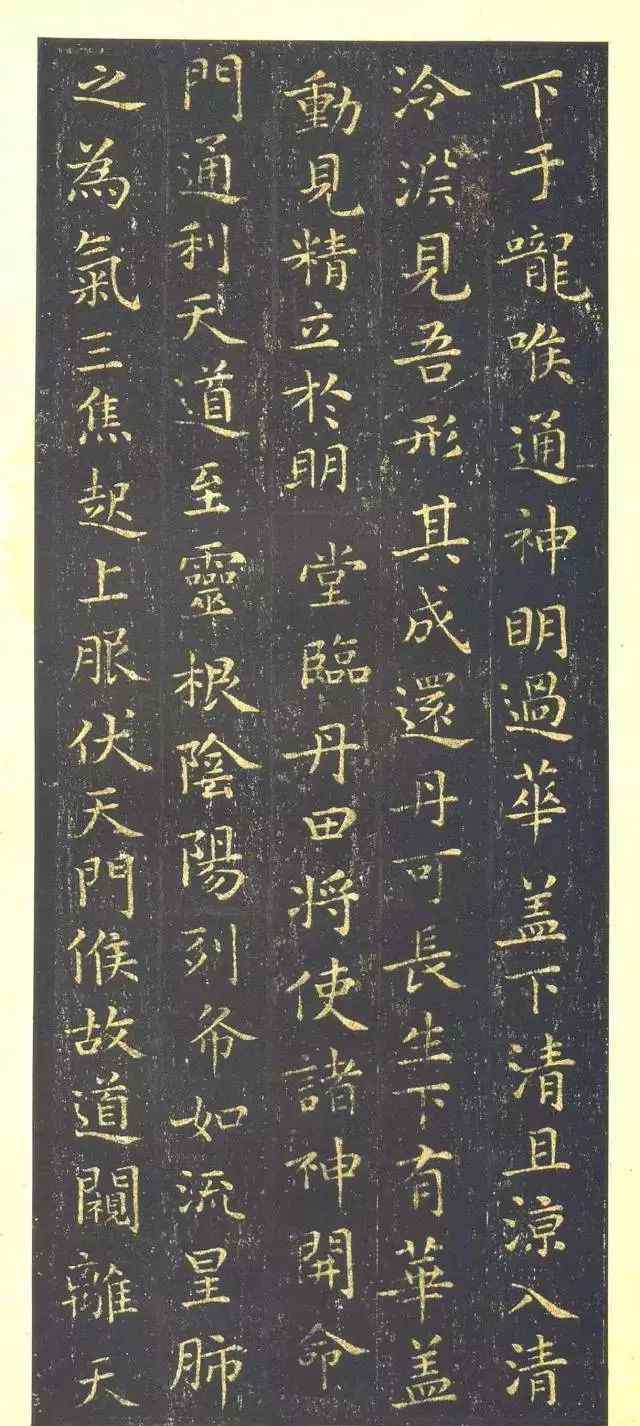 下于嚨喉通神明過華盖下清且涼入清
泠渕見吾形其成還丹可長生下有華盖
動見精立於明堂臨丹田将使諸神開命
門通利天道至靈根陰陽列布如流星肺
之為氣三焦起上服伏天門候故道闚離天